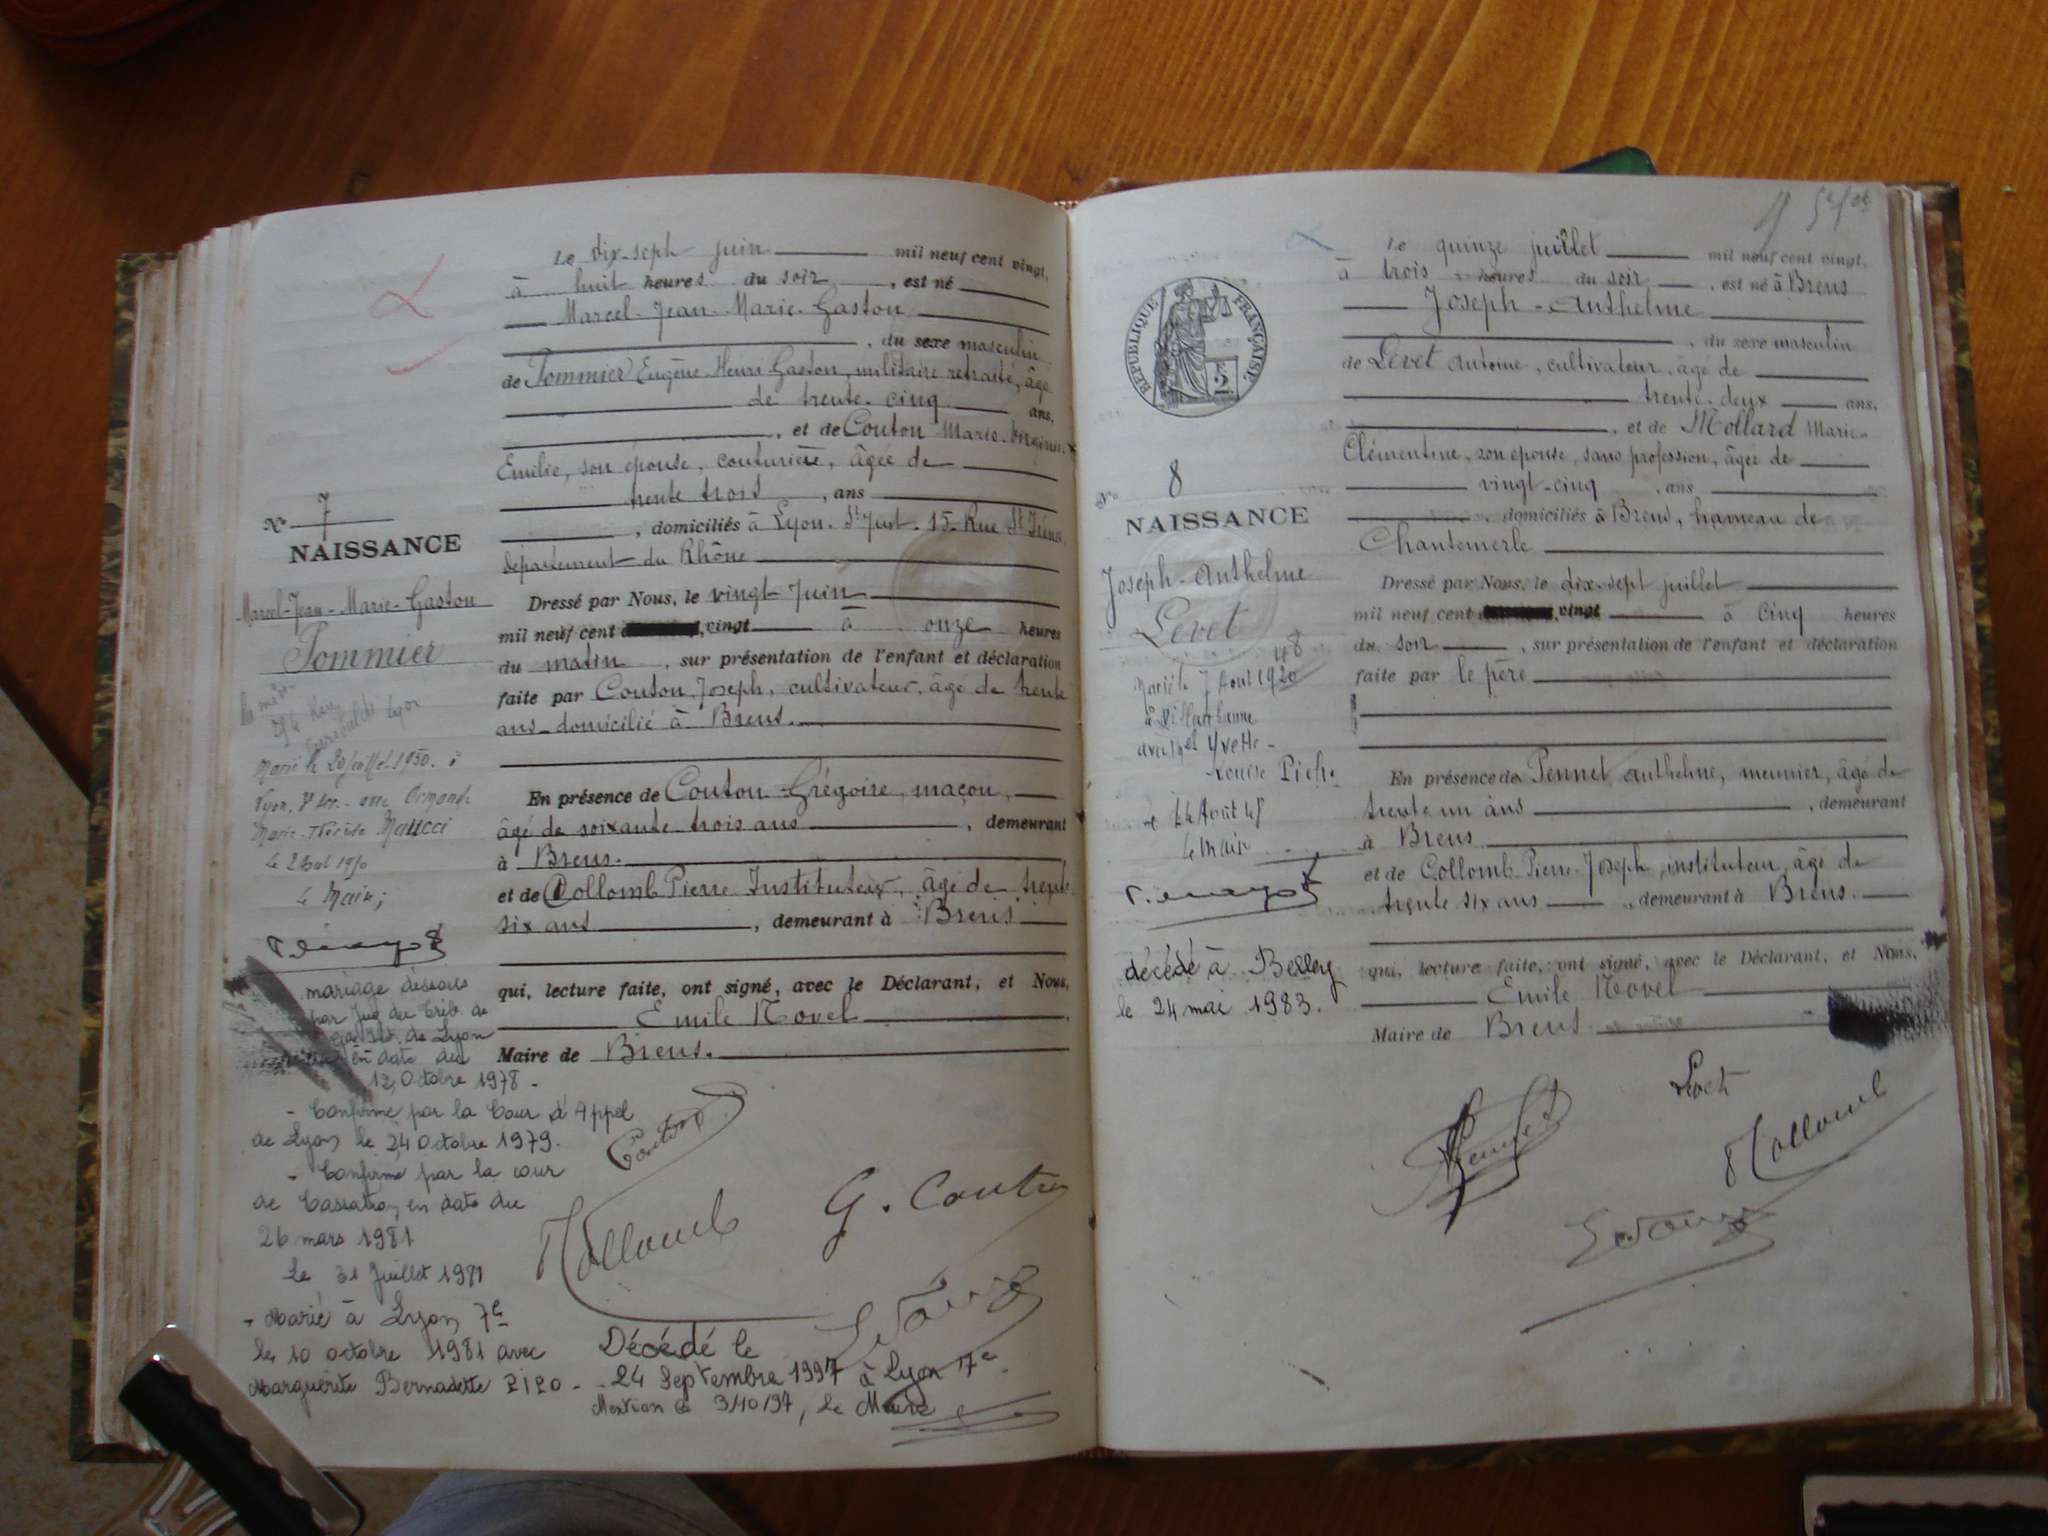 Le dix-seph juin mil neuf cent vingt,
à huit heures du soir, est né
Marcel-Jean-Marie-Gaston
, du sexe masculin
de Pommier Eugène-Henri Gaston, militaire retraité, âgé
de trente-cinq ans,
, et de Couton Marie-Virginie
Emilie, son épouse, couturière, âgée de
trente trois, ans
, domiciliés à Lyon. St Just. 15 Rue St Irénée
département du Rhône
Dressé par Nous, le vingt Juin
mil neuf cent vingt à onze heures
du matin, sur présentation de l'enfant et déclaration
faite par Couton Joseph, cultivateur, âgé de trente
ans domicilié à Brens.
En présence de Couton Grégoire, maçon,
âgé de soixante trois ans, demeurant
à Brens.
et de Collomb Pierre Instituteur, âgé de trente
six ans, demeurant à Brens
qui, lecture faite, ont signé, avec le Déclarant, et Nous,
Emile Novel
Maire de Brens.
N° 7
NAISSANCE
Marcel-Jean-Marie-Gaston
Pommier
Marié le 20 juillet 1950 à
Lyon, avec Armande
Marie-Thérèse Maucci
Le Maire;
mariage dissous
par jug. du Trib. de
de Lyon
en date du
12 Octobre 1978 -
- Confirmé par la Cour d'Appel
de Lyon le 24 Octobre 1979.
- Confirmé par la cour
de Cassation en date du
26 mars 1981
Le 31 Juillet 1981
- Marié à Lyon 7e
le 10 octobre 1981 avec
Marguerite Bernadette ZIZO -
Couton
Collomb
G. Couton
Décédé le
24 Septembre 1997 à Lyon 7e.
Mention le 3/10/97, le Maire
Le quinze juillet mil neuf cent vingt,
à trois heures du soir, est né à Brens
Joseph-Anthelme
, du sexe masculin
de Levet Antoine, cultivateur, âgé de
trente-deux ans,
, et de Mollard Marie-
Clémentine, son épouse, sans profession, âgée de
vingt-cinq, ans
, domiciliés à Brens, hameau de
Chantemerle
Dressé par Nous, le dix-sept juillet
mil neuf cent vingt à cinq heures
du soir, sur présentation de l'enfant et déclaration
faite par le père
En présence de Pennet Anthelme, meunier, âgé de
trente un ans, demeurant
à Brens
et de Collomb Pierre-Joseph, instituteur, âgé de
trente six ans, demeurant à Brens.
qui, lecture faite, ont signé, avec le Déclarant, et Nous,
Emile Novel
Maire de Brens
RÉPUBLIQUE FRANÇAISE
N° 8
NAISSANCE
Joseph-Anthelme
Levet
Marié le 7 Août 1920
48
à Villeurbanne
avec Yvette-
Louise
Le Maire
décédé à Belley
le 24 mai 1983.
Levet
Collomb